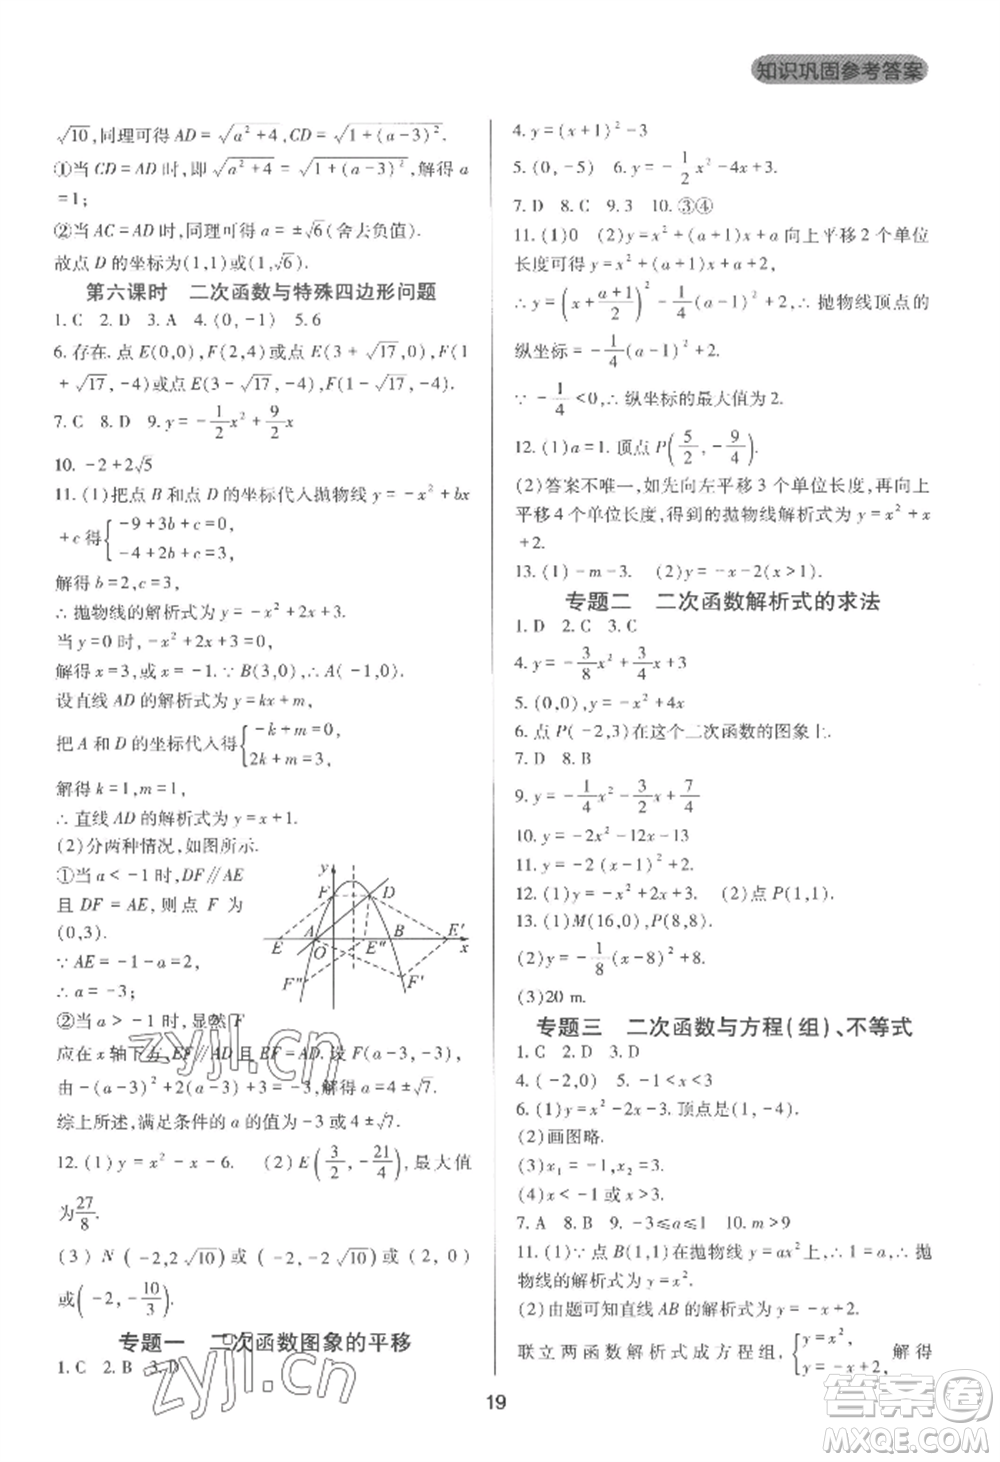 知识巩固参考答案
√10,同理可得 AD=√(a²+4),CD=√(1+(a-3)²).
①当 CD=AD 时,即√(a²+4)=√(1+(a-3)²),解得 a
=1;
②当 AC=AD 时,同理可得 a=±√6(舍去负值).
故点 D 的坐标为(1,1)或(1,√6).
第六课时 二次函数与特殊四边形问题
1. C 2. D 3. A 4. (0,-1) 5. 6
6. 存在.点 E(0,0),F(2,4)或点 E(3+√17,0),F(1
+√17,-4)或点 E(3-√17,0),F(1-√17,-4)
7. C 8. D 9. y=-1/2x²+9/2x
10. -2+2√5
11. (1)把点 B 和点 D 的坐标代入抛物线 y=-x²+bx
+c 得{-9+3b+c=0, -4+2b+c=3,
解得 b=2,c=3,
∴抛物线的解析式为 y=-x²+2x+3.
当 y=0 时,-x²+2x+3=0,
解得 x=3,或 x=-1.∵B(3,0),∴A(-1,0).
设直线 AD 的解析式为 y=kx+m,
把 A 和 D 的坐标代入得{-k+m=0, 2k+m=3,
解得 k=1,m=1,
∴直线 AD 的解析式为 y=x+1.
(2)分两种情况,如图所示.
①当 a<-1 时,DF∥AE
且 DF=AE,则点 F 为
(0,3).
∵AE=-1-a=2,
∴a=-3;
②当 a>-1 时,显然 F
应在 x 轴下方,EF∥AD 且 EF=AD,设 F(a-3,-3).
由-(a-3)²+2(a-3)+3=-3,解得 a=4±√7.
综上所述,满足条件的 a 的值为-3 或 4±√7.
y
F D
E A O E" B E' x
F" F'
12. (1)y=x²-x-6. (2)E(3/2,-21/4),最大值
为27/8.
(3) N (-2,2√10)或(-2,-2√10)或(-2,2)
或(-2,-10/3).
专题一 二次函数图象的平移
1. C 2. B 3. D
4. y=(x+1)²-3
5. (0,-5) 6. y=-1/2x²-4x+3.
7. D 8. C 9. 3 10. ③④
11. (1)0 (2)y=x²+(a+1)x+a 向上平移 2 个单位
长度可得 y=x²+(a+1)x+a+2,
∴y=(x+(a+1)/2)²-1/4(a-1)²+2,∴抛物线顶点的
纵坐标=-1/4(a-1)²+2.
∵-1/4<0,∴纵坐标的最大值为 2.
12. (1)a=1.顶点 P(5/2,-9/4).
(2)答案不唯一,如先向左平移 3 个单位长度,再向上
平移 4 个单位长度,得到的抛物线解析式为 y=x²+x
+2.
13. (1)-m-3. (2)y=-x-2(x>1).
专题二 二次函数解析式的求法
1. D 2. C 3. C
4. y=-3/8x²+3/4x+3
5. (0,0),y=-x²+4x
6. 点 P(-2,3)在这个二次函数的图象上.
7. D 8. B
9. y=-1/4x²-3/2x+7/4
10. y=-2x²-12x-13
11. y=-2(x-1)²+2
12. (1)y=-x²+2x. (2)点 P(1,1).
13. (1)M(16,0),P(8,8).
(2)y=-1/8(x-8)²+8.
(3)20 m.
专题三 二次函数与方程(组)、不等式
1. C 2. D 3. D
4. (-2,0) 5. -1<x<3
6. (1)y=x²-2x-3.顶点是(1,-4).
(2)画图略.
(3)x₁=-1,x₂=3.
(4)x<-1 或 x>3
7. A 8. B 9. -3≤a≤1 10. m>9
11. (1)∵点 B(1,1)在抛物线 y=ax²上,∴1=a,∴抛
物线的解析式为 y=x²
(2)由题可知直线 AB 的解析式为 y=-x+2.
联立两函数解析式成方程组,{y=x², y=-x+2, 解得
19
zyjl.cn
zyjl.cn
答案圈
MXQE.COM